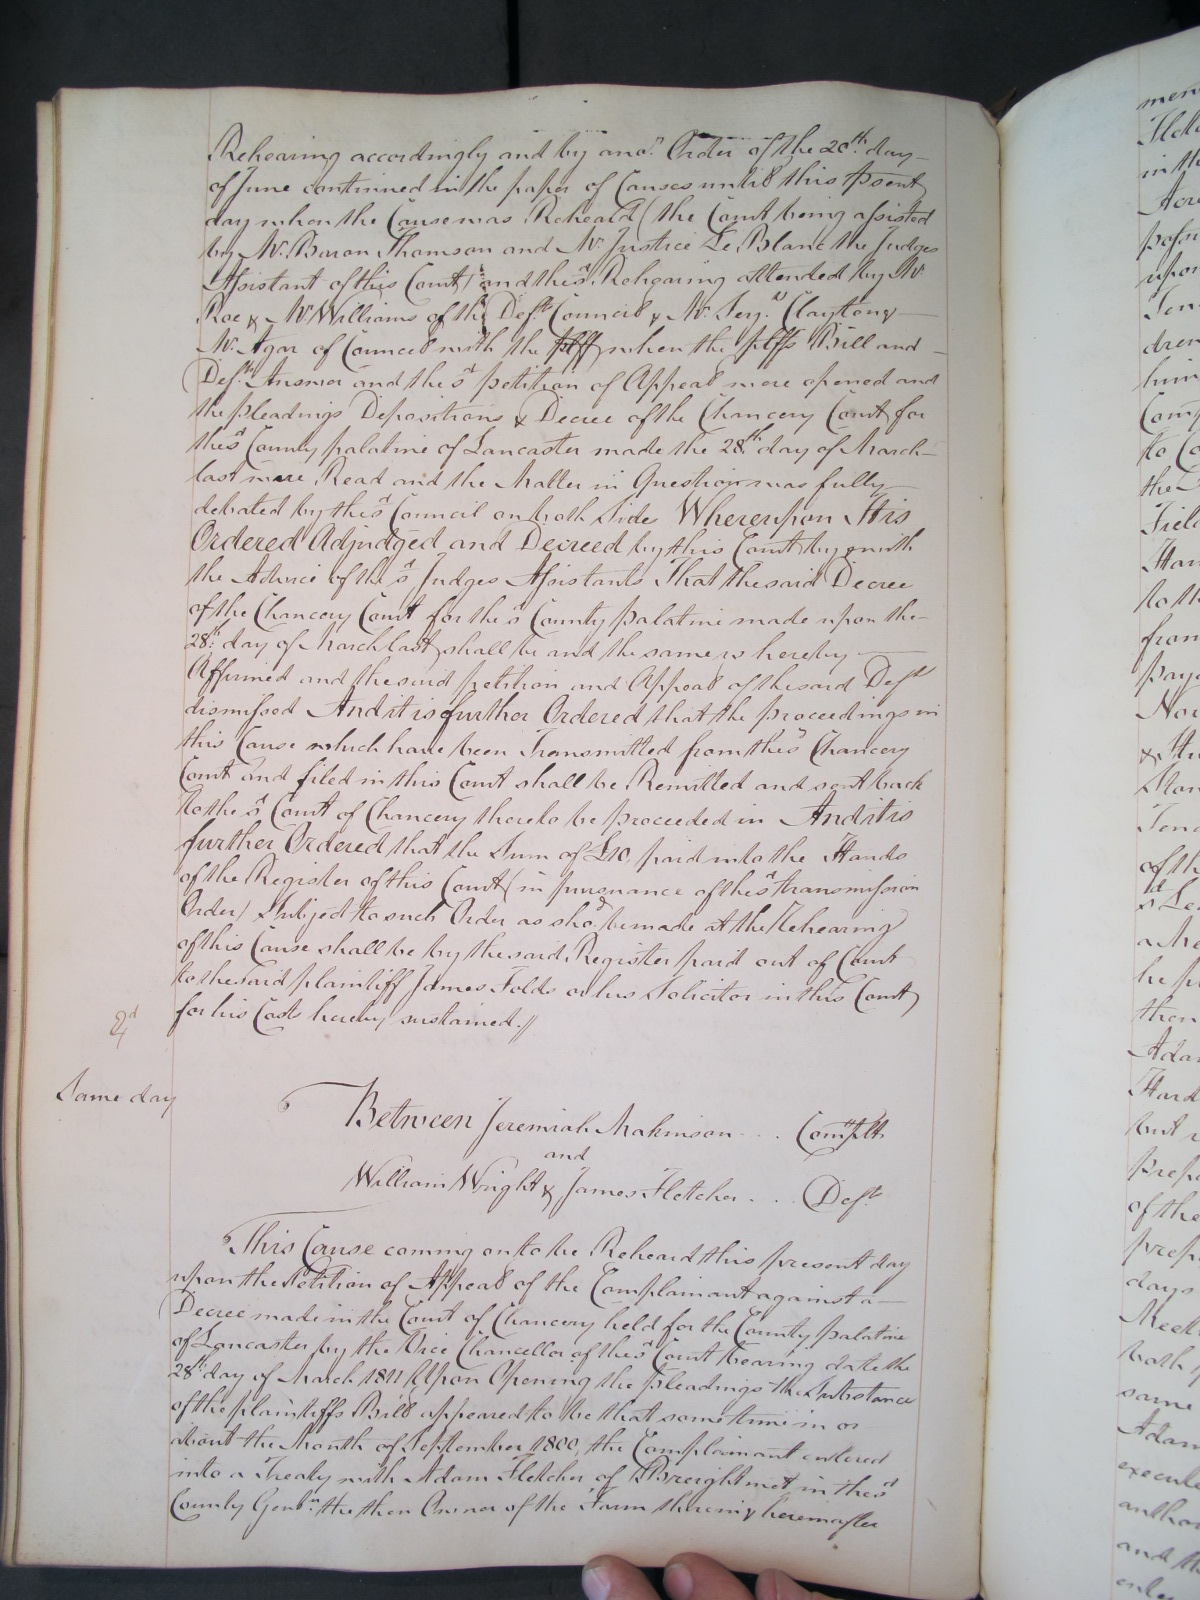 Rehearing accordingly and by ano.r Order of the 20th day
of June continued in the paper of Causes until this psent
day when the Cause was Reheard (the Court being assisted
by Mr. Baron Thomson and Mr. Justice Le Blanc the Judges
Assistant of this Court) and the sd Rehearing attended by Mr
Roe & Mr. Williams of the Defts Council & Mr. Serj.t Clayton &
Mr. Agar of Council with the pltff when the pltffs Bill and
Defts Answer and the sd petition of Appeal were opened and
the pleadings Depositions & Decree of the Chancery Court for
the sd County palatine of Lancaster made the 28th day of March
last were Read and the Matter in Question was fully
debated by the sd Council on both Side Whereupon It is
Ordered Adjudged and Decreed by this Court by & with
the Advice of the sd Judges Assistants That the said Decree
of the Chancery Court for the sd County palatine made upon the
28th day of March last shall be and the same is hereby
Affirmed and the said petition and Appeal of the said Defts
dismissed And it is further Ordered that the proceedings in
this Cause which have been Transmitted from the sd Chancery
Court and filed in this Court shall be Remitted and sent back
to the sd Court of Chancery there to be proceeded in And it is
further Ordered that the Sum of £10 paid into the Hands
of the Register of this Court (in pursuance of the sd transmission
Order) Subject to such Order as sho.d be made at the Rehearing
of this Cause shall be by the said Register paid out of Court
to the said plaintiff James Folds or his Solicitor in this Court
for his Costs hereby sustained.//
Same day
Between Jeremiah Makinson .. Complt
and
William Wright & James Fletcher .. Defts
This Cause coming on to be Reheard this present day
upon the Petition of Appeal of the Complainant against a
Decree made in the Court of Chancery held for the County palatine
of Lancaster by the Vice Chancellor of the sd Court bearing date the
28th day of March 1811 Upon Opening the pleadings the Substance
of the plaintiffs Bill appeared to be that some time in or
about the Month of September 1800, the Complainant entered
into a Treaty with Adam Fletcher of Breightmet in the sd
County Gentn. the then Owner of the Farm therein & hereinafter